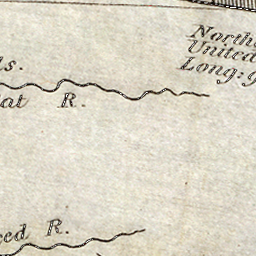 North
United
Long: 9
ls.
lat R.
eed R.